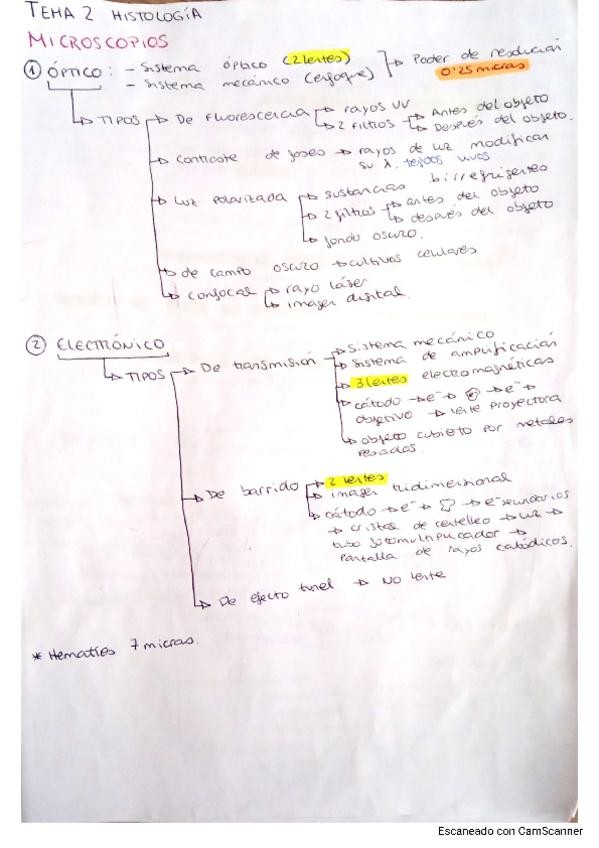 TEMA 2 HISTOLOGÍA
MICROSCOPIOS
① ÓPTICO: - Sistema óptico (2 lentes)
- Sistema mecánico (enfoque)
Poder de resolución
0'25 micras
TIPOS
De fluorescencia
rayos UV
2 filtros
Antes del objeto
Después del objeto.
contraste de fases → rayos de luz modifican
su λ. tejidos vivos
Luz polarizada
sustancias birrefrigentes
2 filtros
antes del objeto
después del objeto
fondo oscuro.
de campo oscuro → cultivos celulares
confocal
rayo láser
imagen digital.
② ELECTRÓNICO
TIPOS
De transmisión
Sistema mecánico
Sistema de amplificación
3 lentes electromagnéticas
cátodo → e⁻ → → e⁻ →
objetivo → lente proyectora
objeto cubierto por metales
pesados.
De barrido
2 lentes
imagen tridimensional
cátodo → e⁻ → → e⁻ secundarios
→ cristal de centelleo → luz →
tubo fotomultiplicador →
Pantalla de rayos catódicos.
De efecto tunel → No lente
* Hematíes 7 micras.
Escaneado con CamScanner